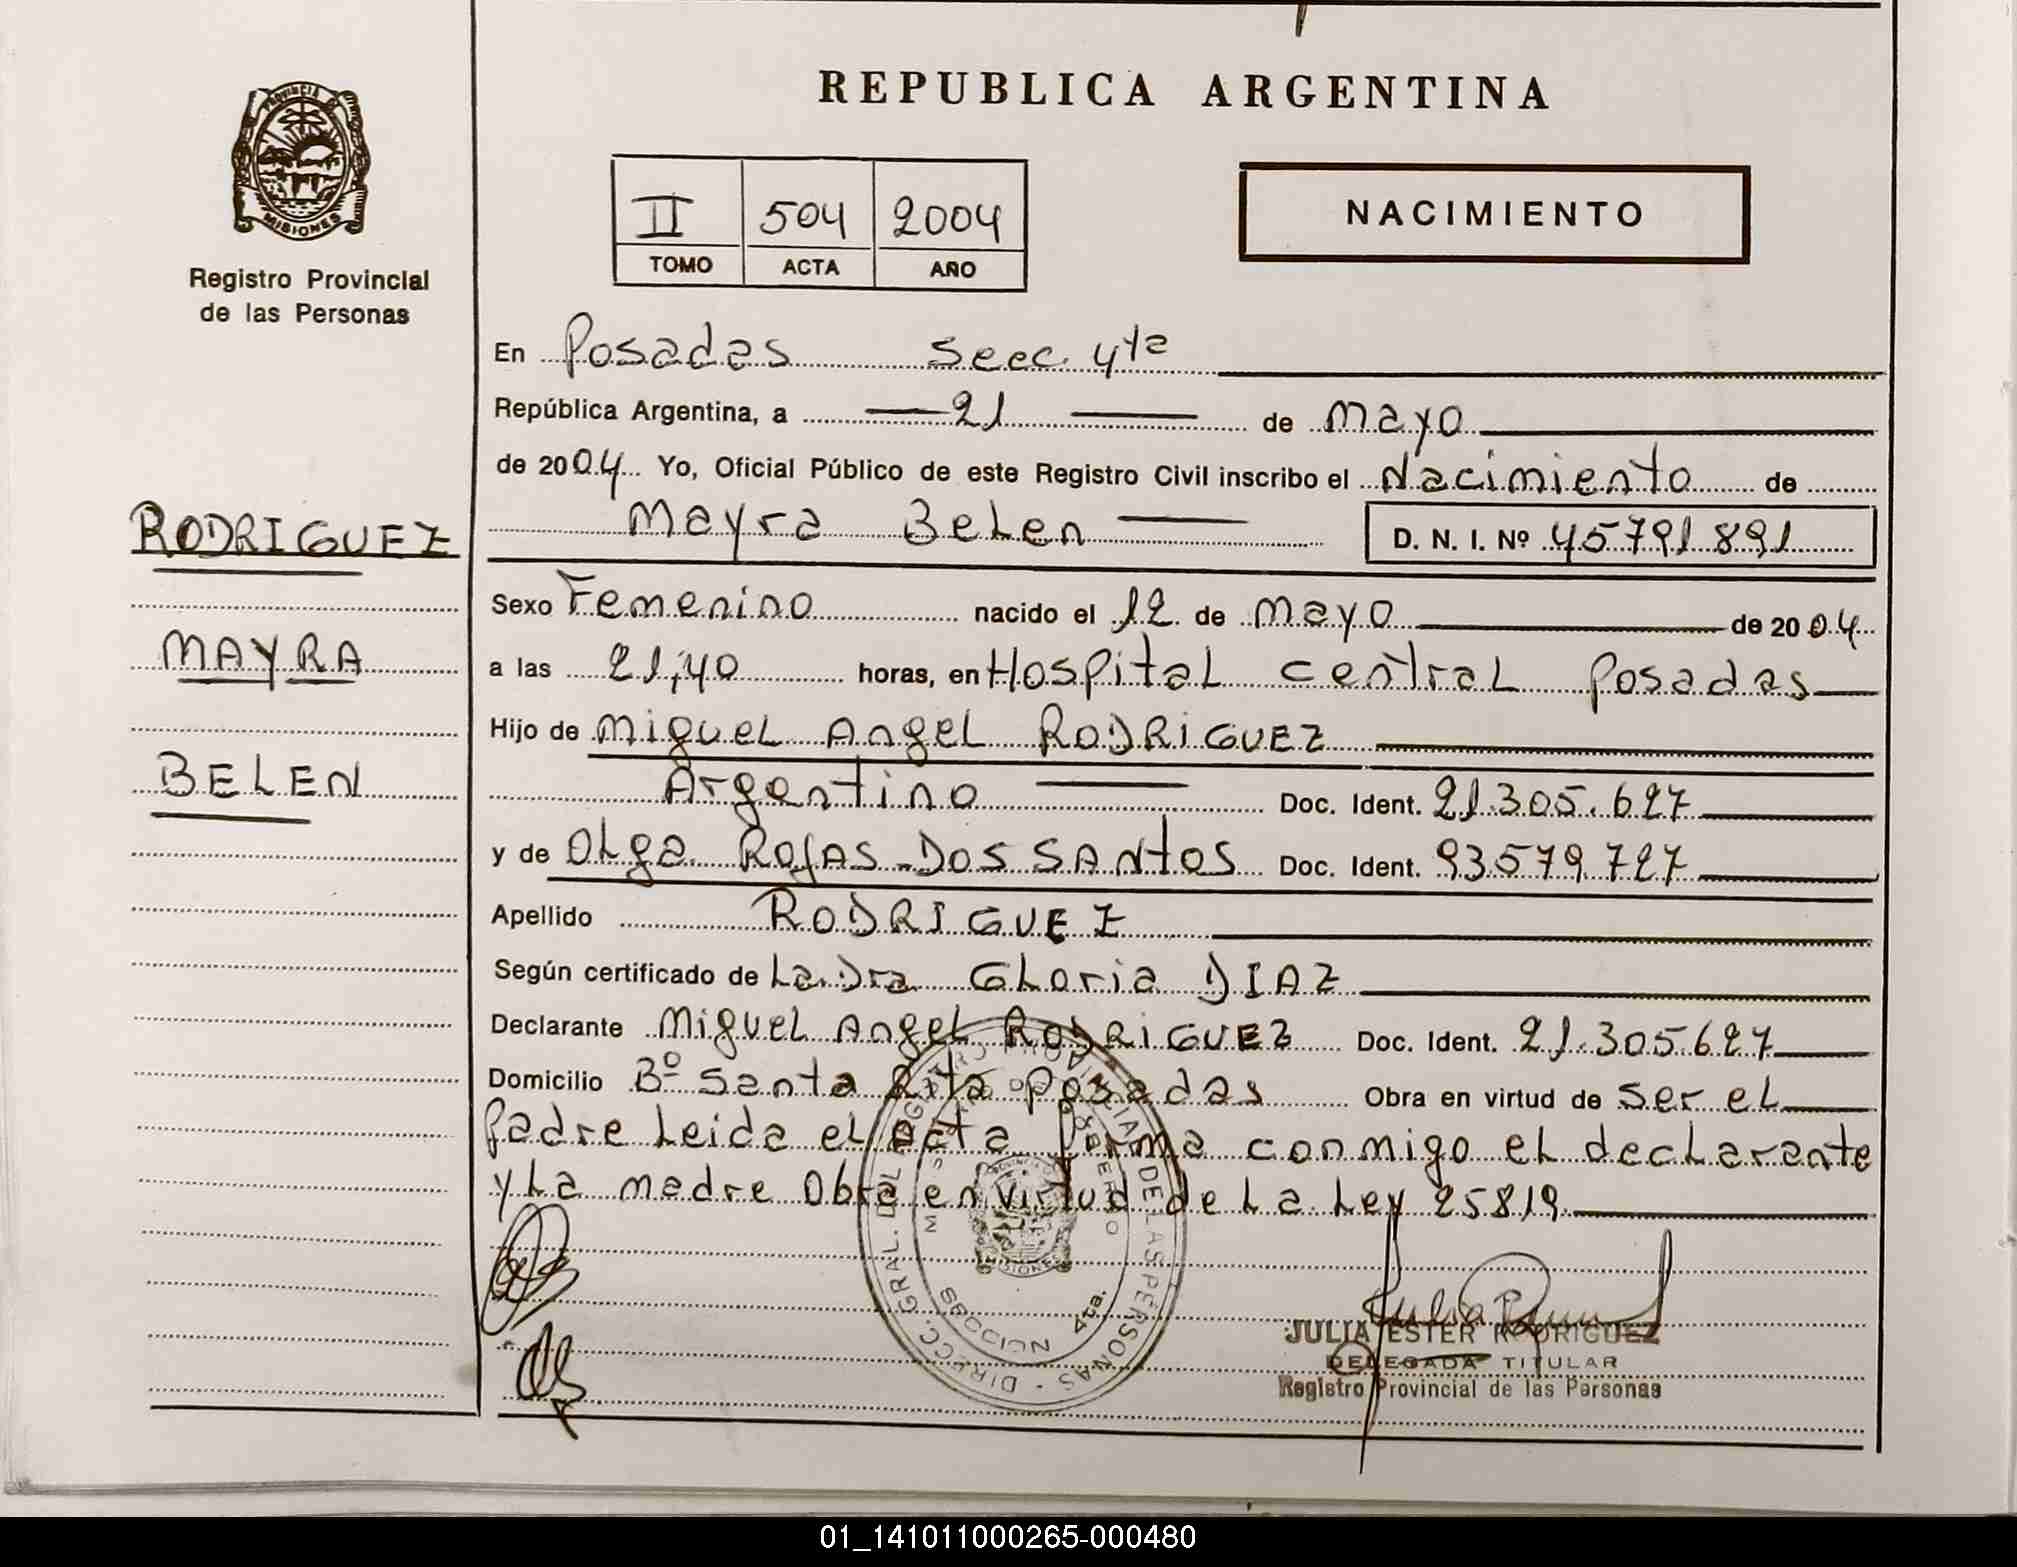 REPUBLICA ARGENTINA
PROVINCIA DE
MISIONES
Registro Provincial
de las Personas
II 504 2004
TOMO ACTA AÑO
NACIMIENTO
En Posadas Secc. 4ta
República Argentina, a 21 de Mayo
de 2004 Yo, Oficial Público de este Registro Civil inscribo el Nacimiento de
Mayra Belen D. N. I. Nº 45791891
RODRIGUEZ
MAYRA
BELEN
Sexo Femenino nacido el 12 de Mayo de 2004
a las 21,40 horas, en Hospital central Posadas
Hijo de Miguel Angel RODRIGUEZ
Argentino Doc. Ident. 21.305.627
y de Olga ROJAS-DOS SANtOS Doc. Ident. 93579727
Apellido RODRIGUEZ
Según certificado de La Dra GLoria DIAZ
Declarante Miguel Angel RODRIGUEZ Doc. Ident. 21.305627
Domicilio Bº Santa Rita Posadas Obra en virtud de ser el
Padre Leida el acta firma conmigo el declarante
y La madre Obra en virtud de La Ley 25819
DIRECC. GRAL. DEL REGISTRO PROVINCIAL DE LAS PERSONAS -
4ta.
JULIA ESTER RODRIGUEZ
DELEGADA TITULAR
Registro Provincial de las Personas
01_141011000265-000480